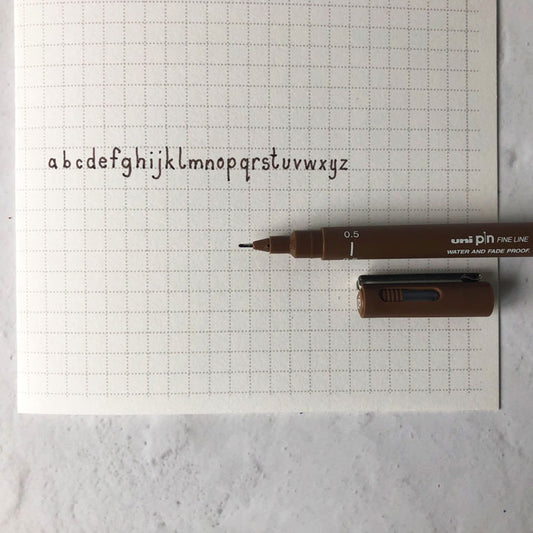 abcdefghijklmnopqrstuvwxyz
0.5
uni pin FINE LINE
WATER AND FADE PROOF.